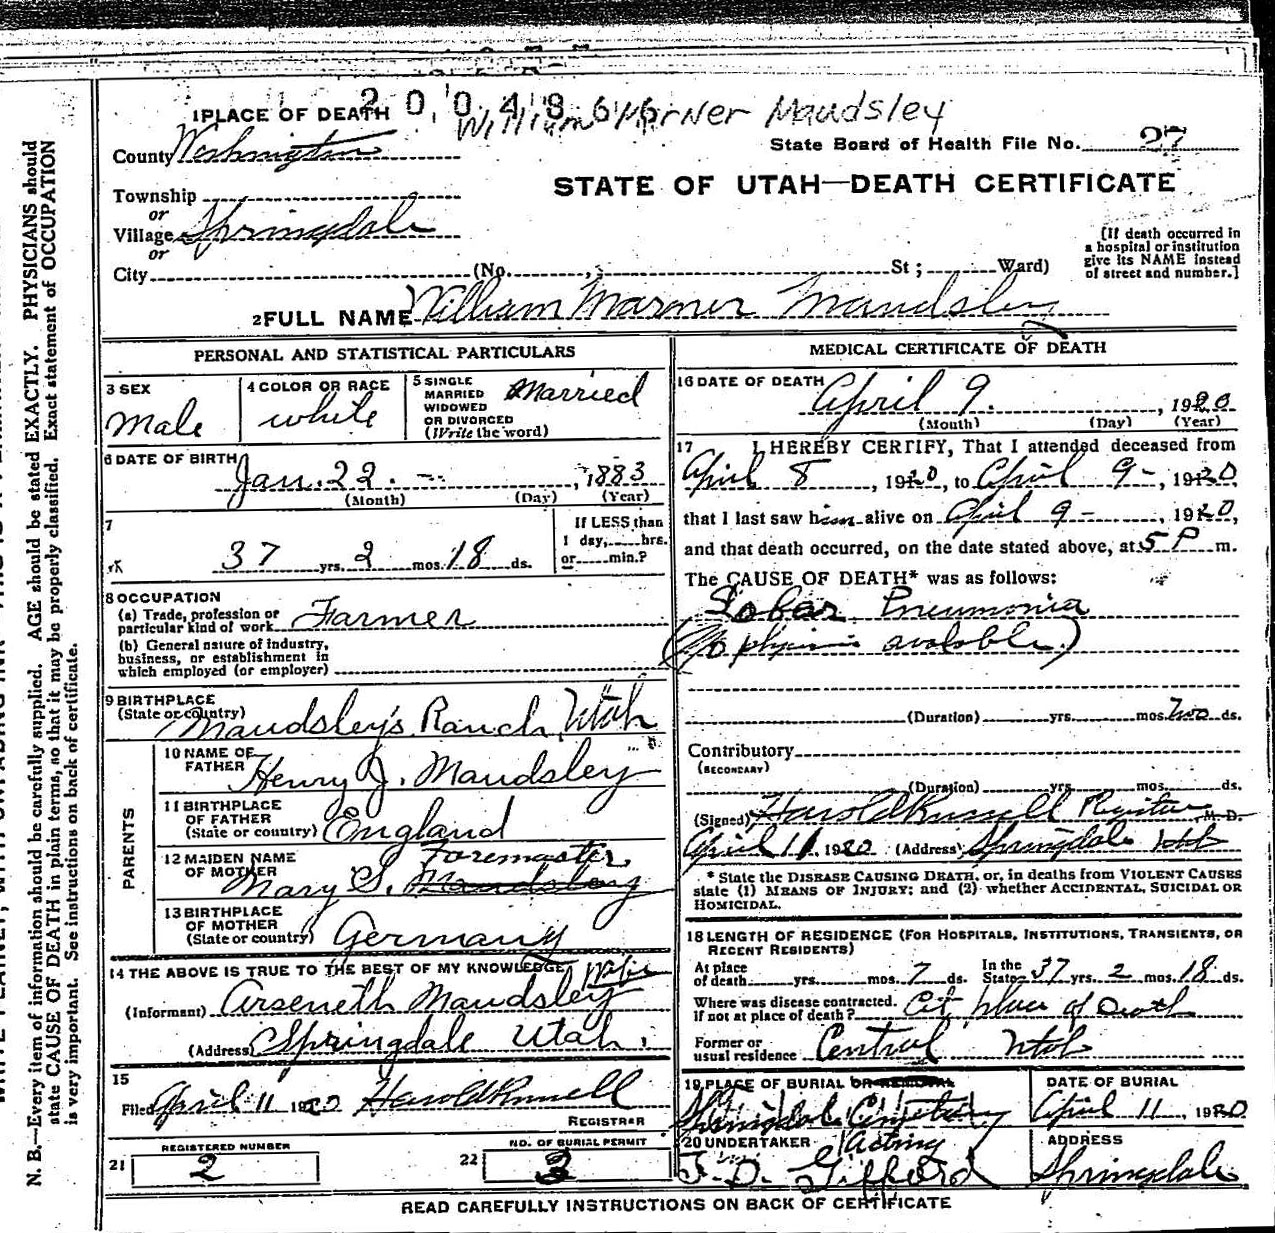 2 0 0 4 8 6 6
William Warner Maudsley
1 PLACE OF DEATH
County Washington
State Board of Health File No. 27
STATE OF UTAH—DEATH CERTIFICATE
Township
or
Village Springdale
or
City (No. , ; St ; Ward)
[If death occurred in
a hospital or institution
give its NAME instead
of street and number.]
2 FULL NAME William Warner Maudsley
PERSONAL AND STATISTICAL PARTICULARS
3 SEX
Male
4 COLOR OR RACE
white
5 SINGLE
MARRIED
WIDOWED
OR DIVORCED
(Write the word)
Married
6 DATE OF BIRTH
Jan. 22. , 1883
(Month) (Day) (Year)
7
37 yrs. 2 mos. 18 ds.
If LESS than
1 day, hrs.
or min.?
8 OCCUPATION
(a) Trade, profession or
particular kind of work Farmer
(b) General nature of industry,
business, or establishment in
which employed (or employer)
9 BIRTHPLACE
(State or country)
Maudsley's Ranch, Utah
PARENTS
10 NAME OF
FATHER Henry J. Maudsley
11 BIRTHPLACE
OF FATHER
(State or country) England
12 MAIDEN NAME
OF MOTHER
Foremaster
Mary S. Maudsley
13 BIRTHPLACE
OF MOTHER
(State or country) Germany
14 THE ABOVE IS TRUE TO THE BEST OF MY KNOWLEDGE
(Informant) Arseneth Maudsley
(Address) Springdale Utah.
15
Filed April 11 1920 Harold Russell
REGISTRAR
REGISTERED NUMBER
21 2
NO. OF BURIAL PERMIT
22 3
MEDICAL CERTIFICATE OF DEATH
16 DATE OF DEATH April 9. , 1920
(Month) (Day) (Year)
17 I HEREBY CERTIFY, That I attended deceased from
April 8 , 1920, to April 9 , 1920,
that I last saw him alive on April 9 , 1920,
and that death occurred, on the date stated above, at 5 P m.
The CAUSE OF DEATH* was as follows:
Lobar Pneumonia
(No available)
(Duration) yrs. mos. Two ds.
Contributory
(SECONDARY)
(Duration) yrs. mos. ds.
(Signed) Harold Russell M. D.
April 11 1920 (Address) Springdale Utah
* State the DISEASE CAUSING DEATH, or, in deaths from VIOLENT CAUSES
state (1) MEANS OF INJURY; and (2) whether ACCIDENTAL, SUICIDAL OR
HOMICIDAL.
18 LENGTH OF RESIDENCE (FOR HOSPITALS, INSTITUTIONS, TRANSIENTS, OR
RECENT RESIDENTS)
At place
of death yrs. mos. 7 ds.
In the
State 37 yrs. 2 mos. 18 ds.
Where was disease contracted,
if not at place of death? At place of Death
Former or
usual residence Central Utah
19 PLACE OF BURIAL OR REMOVAL
Springdale Cemetery
DATE OF BURIAL
April 11, 1920
20 UNDERTAKER Acting
J. D. Gifford
ADDRESS
Springdale
READ CAREFULLY INSTRUCTIONS ON BACK OF CERTIFICATE
N. B.—Every item of information should be carefully supplied. AGE should be stated EXACTLY. PHYSICIANS should
state CAUSE OF DEATH in plain terms, so that it may be properly classified. Exact statement of OCCUPATION
is very important. See instructions on back of certificate.